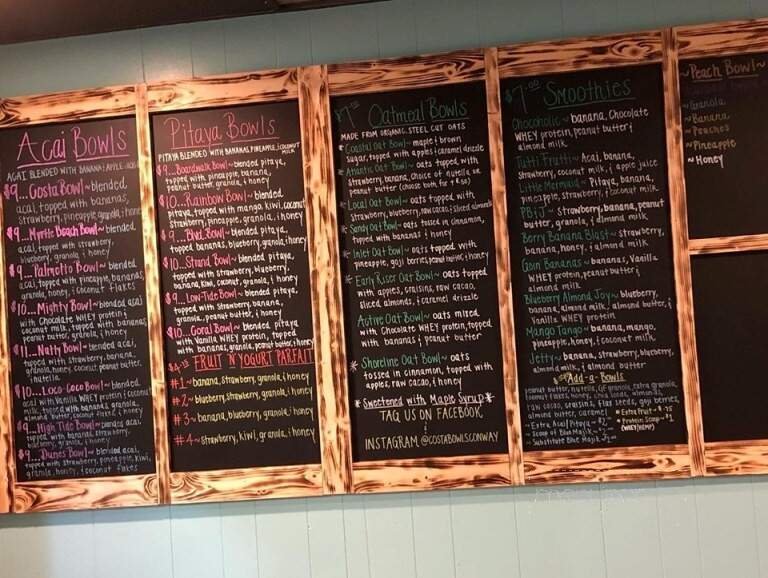 Acai Bowls
ACAI BLENDED WITH BANANA & APPLE JUICE
$9...Costa Bowl~ blended
acai, topped with bananas,
strawberry, pineapple, granola & honey
$9...Myrtle Beach Bowl~
blended
acai, topped with strawberry,
blueberry, granola & honey
$9...Palmetto Bowl~ blended
acai, topped with pineapple, banana,
granola, honey, & coconut flakes
$10...Mighty Bowl~ blended acai
with Chocolate WHEY protein &
coconut milk, topped with bananas,
peanut butter, granola, & honey
$11...Natty Bowl~ blended acai,
topped with strawberry, banana,
granola, honey, coconut, peanut butter,
& nutella
$10...Loco-Coco Bowl~ blended
acai w/ Vanilla WHEY protein & coconut
milk, topped with banana, granola,
almond butter, coconut flakes & honey
$9...High Tide Bowl~ blended
acai, topped with strawberry, banana,
blueberry, granola, & honey
$9...Dunes Bowl~ blended acai,
topped with strawberry, pineapple, kiwi,
granola, honey, & coconut flakes
Pitaya Bowls
PITAYA BLENDED WITH BANANAS, PINEAPPLE, & COCONUT
MILK
$9...Boardwalk Bowl~ blended pitaya,
topped with pineapple, banana,
peanut butter, granola, & honey
$10...Rainbow Bowl~ blended
pitaya, topped with mango, kiwi, coconut,
strawberry, pineapple, granola, & honey
$9...Blvd. Bowl~ blended pitaya,
topped bananas, blueberry, granola, & honey
$10...Strand Bowl~ blended pitaya,
topped with strawberry, blueberry,
banana, granola, & honey
$9...Low-Tide Bowl~ blended pitaya,
topped with strawberry, banana,
granola, peanut butter, & honey
$10...Coral Bowl~ blended pitaya
with Vanilla WHEY protein, topped
with bananas, granola, peanut butter, & honey
FRUIT 'N YOGURT PARFAIT
#1~ banana, strawberry, granola, & honey
#2~ blueberry, strawberry, granola, & honey
#3~ banana, blueberry, granola, & honey
#4~ strawberry, kiwi, granola, & honey
$7.50 Oatmeal Bowls
MADE FROM ORGANIC, STEEL CUT OATS
* Coastal Oat Bowl~ maple & brown
sugar, topped with apples & caramel drizzle
* Atlantic Oat Bowl~ oats topped with
strawberry, banana, choice of nutella or
peanut butter (choose both for + $.50)
* Local Oat Bowl~ oats topped with
strawberry, blueberry, raw cacao, & sliced almonds
* Sandy Oat Bowl~ oats tossed in cinnamon,
topped with bananas & honey
* Inlet Oat Bowl~ oats topped with
pineapple, goji berries, peanut butter, & honey
* Early Riser Oat Bowl~ oats topped
with apples, craisins, raw cacao,
sliced almonds, & caramel drizzle
* Active Oat Bowl~ oats mixed
with Chocolate WHEY protein, topped
with bananas & peanut butter
* Shoreline Oat Bowl~ oats
tossed in cinnamon, topped with
apples, raw cacao, & honey
* Sweetened with Maple Syrup *
TAG US ON FACEBOOK
&
INSTAGRAM @COSTABOWLSCONWAY
$7.00 Smoothies
Chocoholic~ banana, Chocolate
WHEY protein, peanut butter, &
almond milk
Tutti Frutti~ Acai, banana,
strawberry, coconut milk, & apple juice
Little Mermaid~ Pitaya, banana,
pineapple, strawberry, & coconut milk
PB&J~ strawberry, banana, peanut
butter, granola, & almond milk
Berry Banana Blast~ strawberry,
banana, honey, & almond milk
Goin Bananas~ bananas, Vanilla
WHEY protein, peanut butter, &
almond milk
Blueberry Almond Joy~ blueberry,
banana, almond milk, almond butter, &
Vanilla WHEY protein
Mango Tango~ banana, mango,
pineapple, honey, & coconut milk
Jetty~ banana, strawberry, blueberry,
almond milk, & almond butter
Add-a-Bowls
peanut butter, nutella, GF granola, extra granola,
coconut flakes, honey, chia seeds, almonds,
raw cacao, craisins, flax seeds, goji berries,
almond butter, caramel
* Extra Fruit ~ $.75
~ Extra Acai/Pitaya ~ $2.00
* Protein Scoop ~ $3
(WHEY/HEMP)
~ Scoop of Blue Majik ~
~ Substitute Blue Majik
~Peach Bowl~
~Granola
~Banana
~Peaches
~Pineapple
~Honey